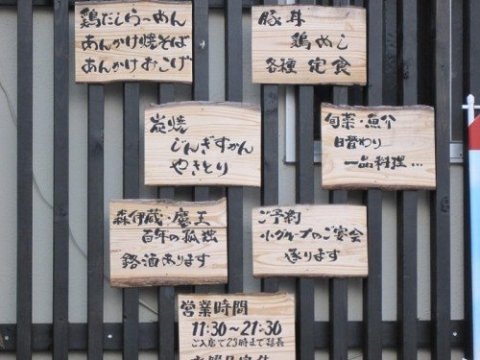 鶏だしらーめん
あんかけ焼そば
あんかけおこげ
豚丼
鶏めし
各種 定食
炭焼
じんぎすかん
やきとり
旬菜・魚介
日替わり
一品料理…
森伊蔵・魔王
百年の孤独
銘酒あります
ご予約
小グループのご宴会
承ります
営業時間
11:30～21:30
ご入店で23時まで延長